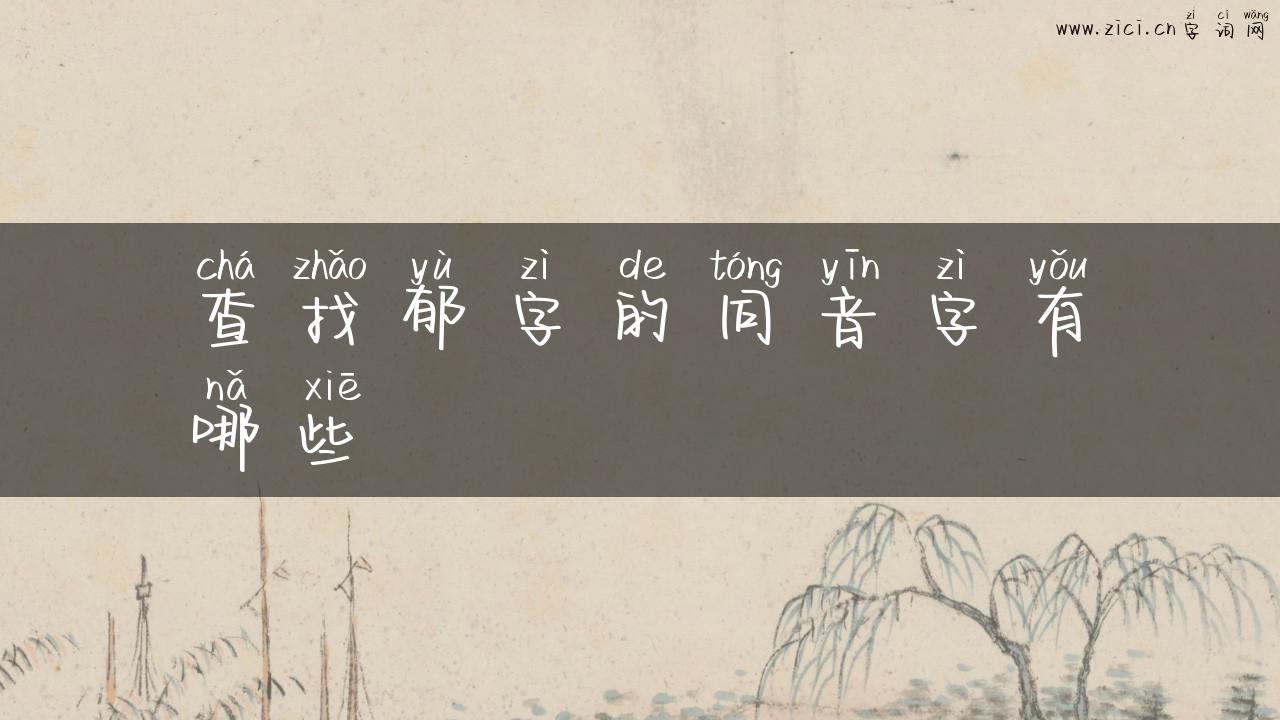 zì cí wǎng
www.zici.cn 字词网
chá zhǎo yù zì de tóng yīn zì yǒu
查找郁字的同音字有
nǎ xiē
哪些